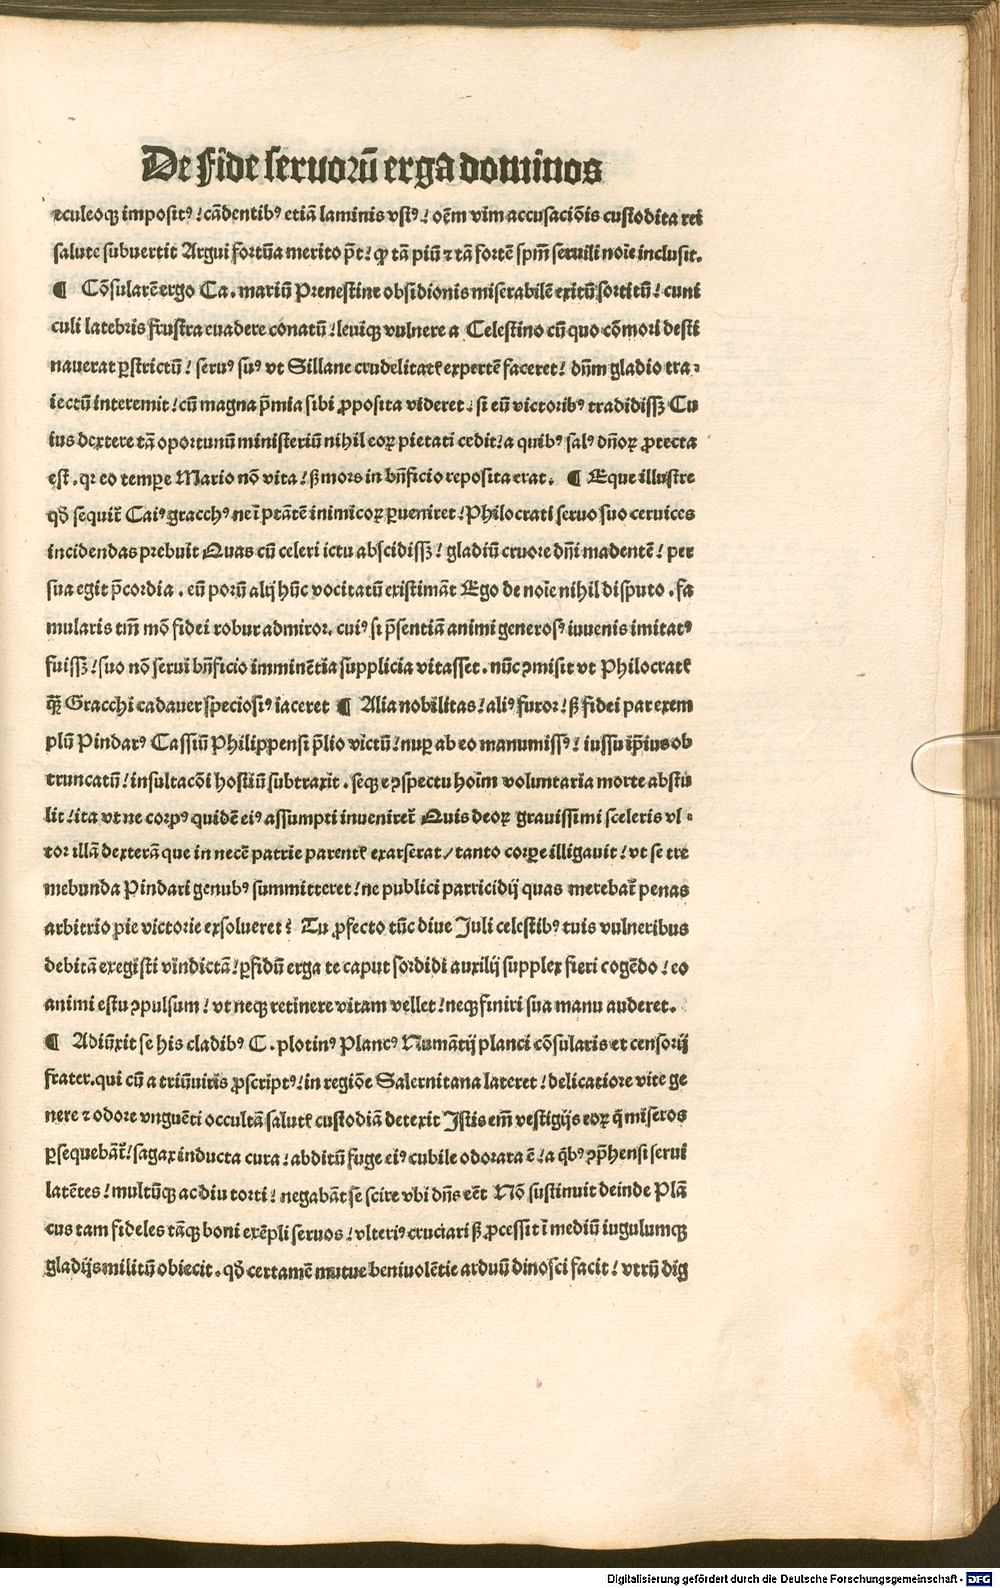 De fide seruoꝝ̄ erga dominos
eculeoqꝫ imposit⁹! cādentib⁹ etiā laminis vst⁹! oēm vim accusaciōis custodita rei
salute subuertit Argui fortūa merito p̄t! ꝙ tā piū ⁊ tā fortē spm̄ seruili noīe inclusit.
¶ Cōsularē ergo Ca. mariū Prenestine obsidionis miserabilē exitū sortitū! cuni
culi latebris frustra euadere conatū! leuiqꝫ vulnere a Celestino cū quo cōmori desti
nauerat ꝑstrictū! seru⁹ su⁹ vt Sillane crudelitatꝭ expertē faceret! dn̄m gladio tra⸗
iectū interemit! cū magna p̄mia sibi ꝓposita videret. si eū victorib⁹ tradidissꝫ Cu
ius dextere tā oportunū ministeriū nihil eoꝝ pietati cedit! a quib⁹ sal⁹ dn̄oꝝ ꝓtecta
est. qꝛ eo tempe Mario nō vita! sꝫ mors in bn̄ficio reposita erat. ¶ Eque illustre
qđ sequit̄ Cai⁹ gracch⁹ ne ī ptātē inimicoꝝ ꝑueniret! Philocrati seruo suo ceruices
incidendas prebuit Quas cū celeri ictu abscidissꝫ! gladiū cruore dn̄i madentē! per
sua egit p̄cordia. eū porū alij hūc vocitatū existimāt Ego de noīe nihil disputo. fa
mularis tm̄ mō fidei robur admiror. cui⁹ si p̄sentiā animi generos⁹ iuuenis imitat⁹
fuissꝫ! suo nō serui bn̄ficio imminētia supplicia vitasset. nūc ꝯmisit vt Philocratꝭ
qꝫ̄ Gracchi cadauer speciosi⁹ iaceret ¶ Alia nobilitas! ali⁹ furor! sꝫ fidei par exem
plū Pindar⁹ Cassiū Philippensi p̄lio victū! nuꝑ ab eo manumiss⁹! iussu ip̄ius ob
truncatū! insultacōi hostiū subtraxit. seqꝫ e ꝯspectu hoīm voluntaria morte abstu
lit! ita vt ne corp⁹ quidē ei⁹ assumpti inuenireť Quis deoꝝ grauissimi sceleris vl⸗
tor illā dexterā que in necē patrie parentꝭ exarserat/ tanto corpe illigauit! vt se tre
mebunda Pindari genub⁹ summitteret! ne publici parricidij quas merebat̄ penas
arbitrio pie victorie exsolueret! Tu ꝓfecto tūc diue Juli celestib⁹ tuis vulneribus
debitā exegisti vindictā! ꝑfidū erga te caput sordidi auxilij supplex fieri cogēdo! eo
animi estu ꝯpulsum! vt neqꝫ retinere vitam vellet! neqꝫ finiri sua manu auderet.
¶ Adiūxit se his cladib⁹ C. plotin⁹ Planc⁹ Numātij planci cōsularis et censorij
frater. qui cū a triūuiris ꝓscript⁹! in regiōe Salernitana lateret! delicatiore vite ge
nere ⁊ odore vnguēti occultā salutꝭ custodiā detexit Istis em̄ vestigijs eoꝝ q̄ miseros
ꝑsequebāt̄! sagax inducta cura! abditū fuge ei⁹ cubile odorara ē! a qb⁹ ꝯp̄hensi serui
latētes! multūqꝫ ac diu torti! negabāt se scire vbi dn̄s eēt Nō sustinuit deinde Plā
cus tam fideles tāqꝫ boni exēpli seruos! vlteri⁹ cruciari sꝫ ꝓcessit ī mediū iugulumqꝫ
gladijs militū obiecit. qđ certamē mutue beniuolētie arduū dinosci facit! vtrū dig
Digitalisierung gefördert durch die Deutsche Forschungsgemeinschaft - DFG